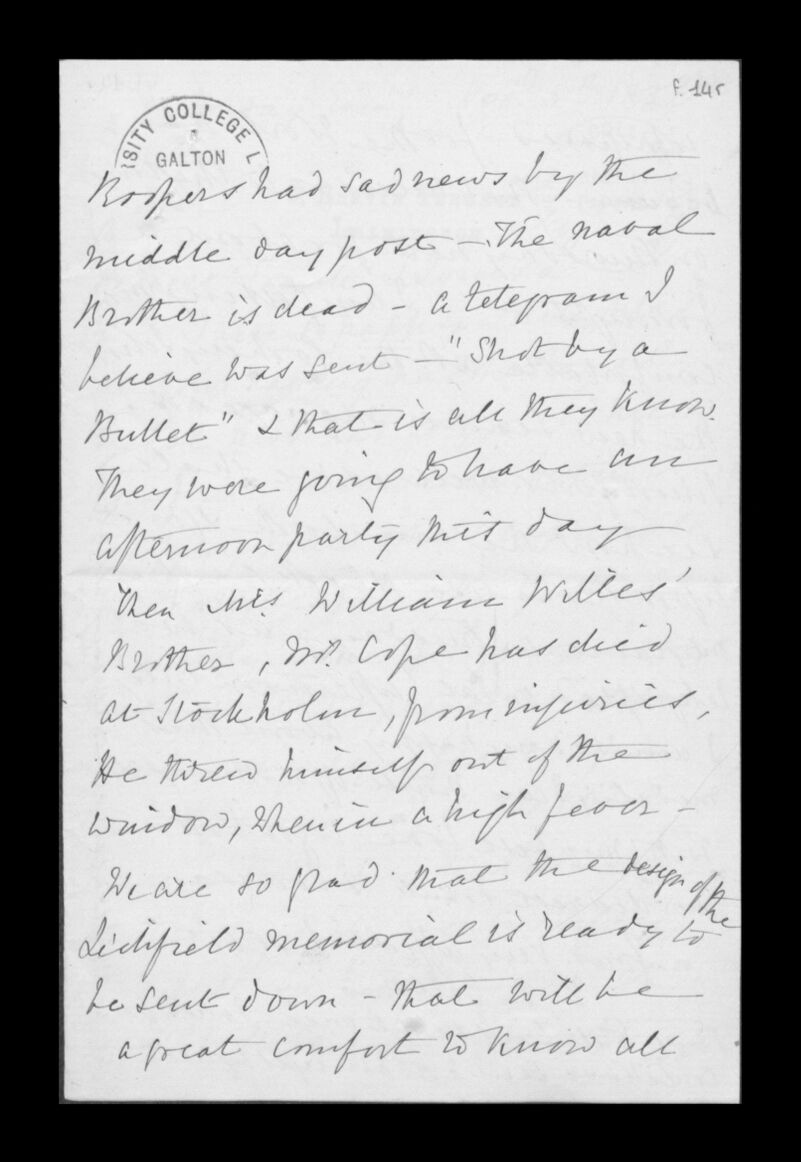 f. 14r
SITY COLLEGE L
GALTON
had sad news by the
middle day post – The naval
Brother is dead – a telegram I
believe was sent – "Shot by a
Bullet" & that is all they know.
They were going to have an
afternoon party this day
Then Mrs. William Willes'
Brother, Mr. Cope has died
at Stockholm, from injuries,
He threw himself out of the
window, when in a high fever –
We are so glad that the design of the
Lichfield memorial is ready to
be sent down – that will be
a great comfort to know all